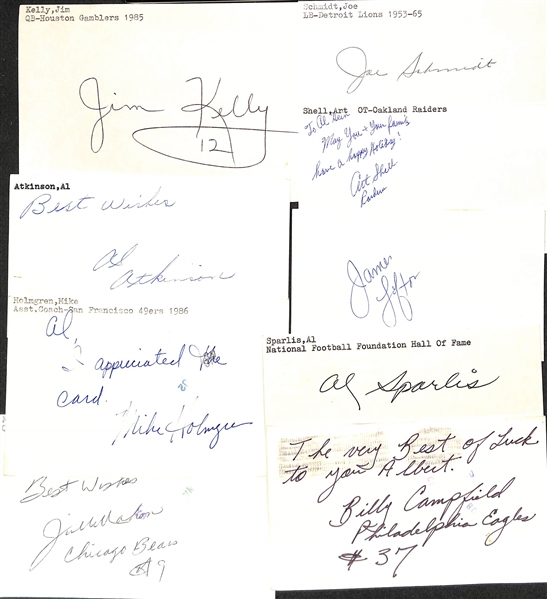 Kelly,Jim
QB-Houston Gamblers 1985
Jim Kelly
12
Schmidt,Joe
LB-Detroit Lions 1953-65
Joe Schmidt
Shell,Art OT-Oakland Raiders
To Al
May You + Your family
have a happy Holiday!
Art Shell
Raiders
Atkinson,Al
Best Wishes
Al
Atkinson
James
Lofton
Holmgren,Mike
Asst.Coach-San Francisco 49ers 1986
Al,
I appriciated the
card.
Mike Holmgren
Sparlis,Al
National Football Foundation Hall Of Fame
Al Sparlis
The very Best of Luck
to you Albert.
Billy Campfield
Philadelphia Eagles
# 37
Best Wishes
Jim McMahon
Chicago Bears
#9